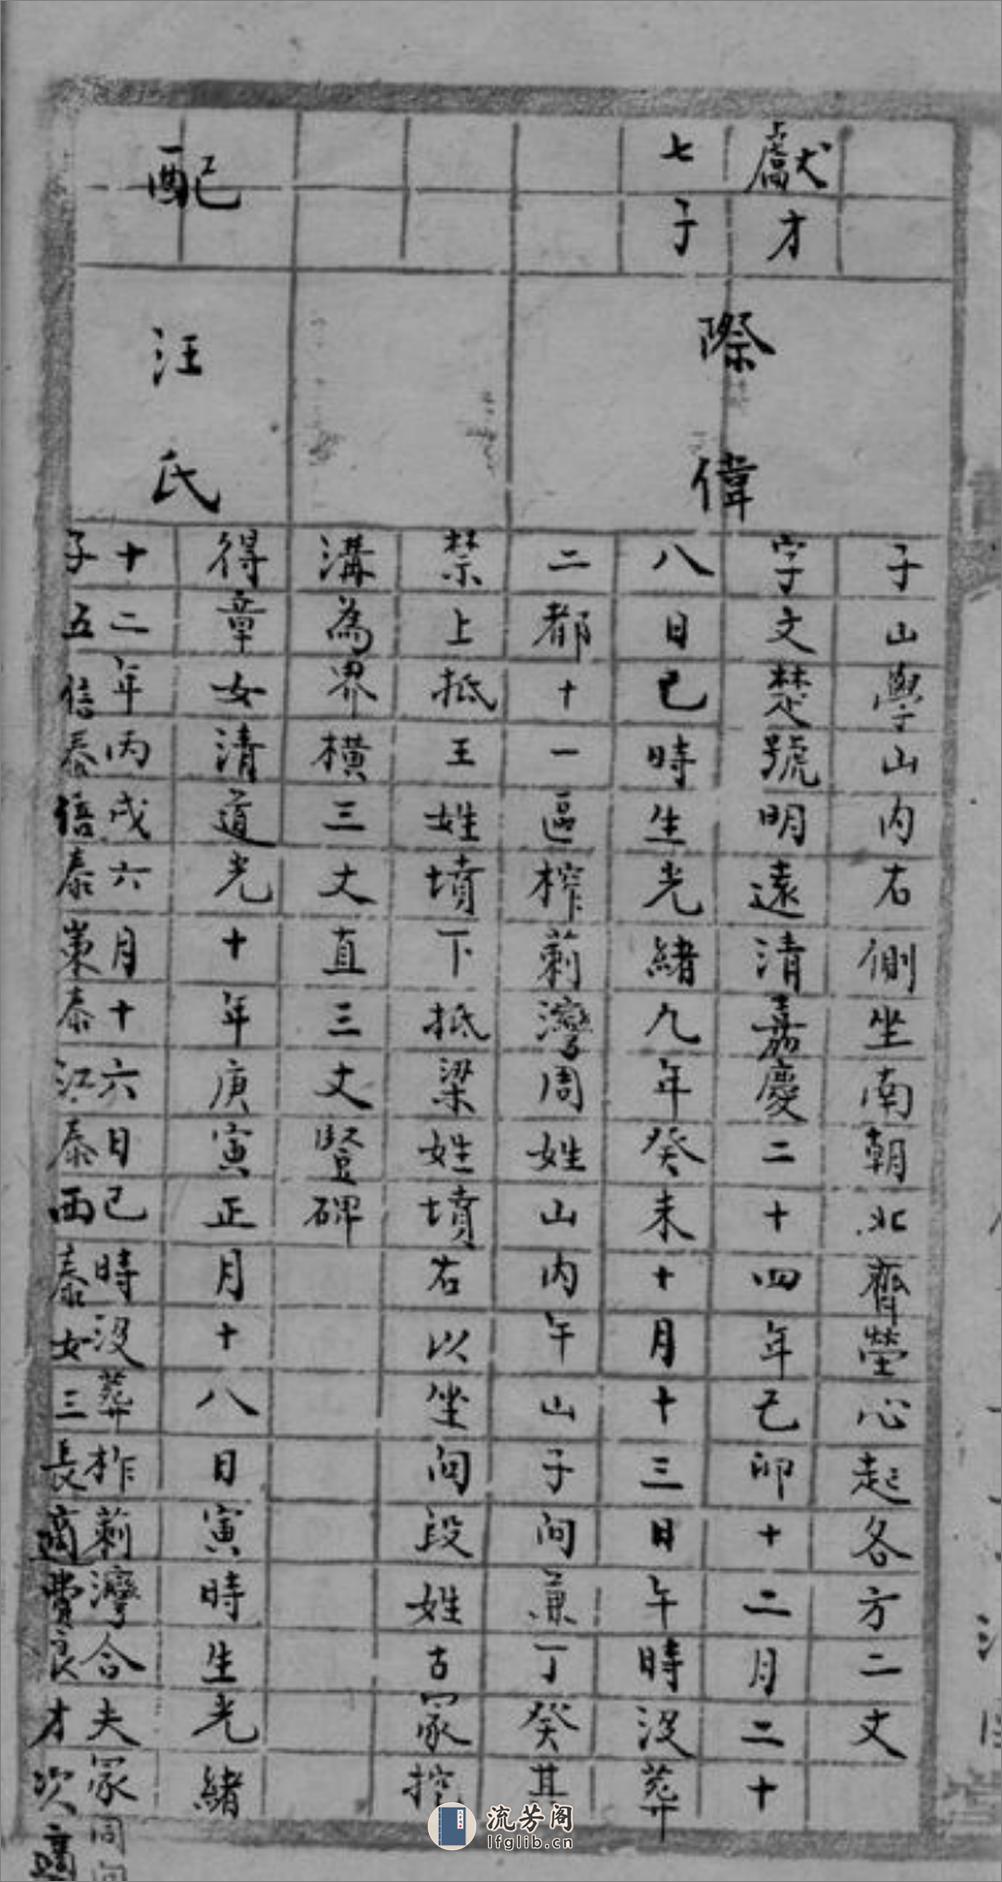 子山學山內右側坐南朝北齊塋心起各方二丈
獻才
七子
際偉
字文楚號明遠清嘉慶二十四年己卯十二月二十
八日巳時生光緒九年癸未十月十三日午時沒葬
二都十一區榨莿灣周姓山內午山子向兼丁癸其
禁上抵王姓墳下抵梁姓墳右以坐向段姓古冢控
溝為界橫三丈直三丈豎碑
配
汪氏
得章女清道光十年庚寅正月十八日寅時生光緒
十二年丙戌六月十六日巳時沒葬柞莿灣合夫冢同向
子五信泰信泰東泰江泰西泰女三長適費良才次適
流芳阁
lfglib.cn